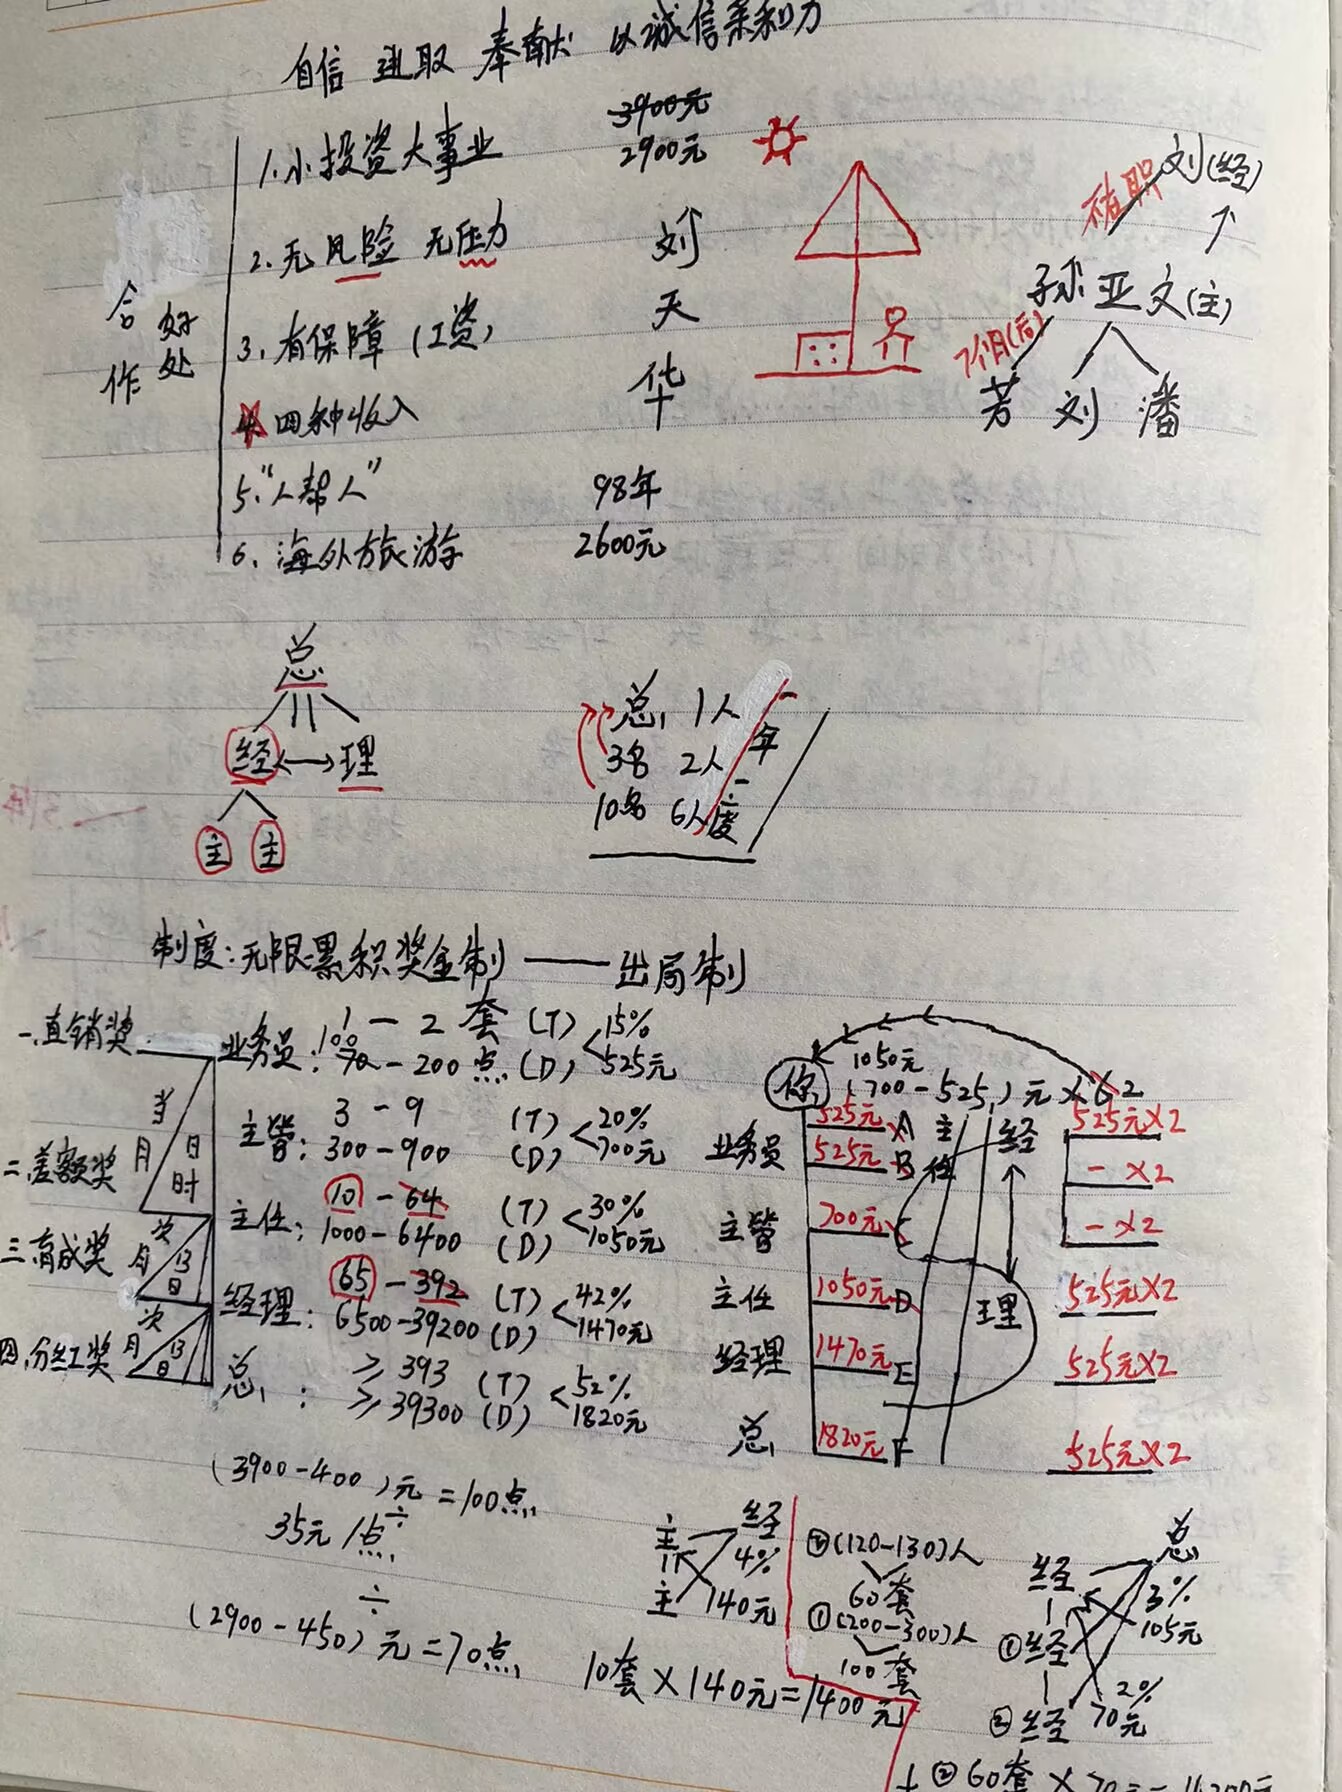 自信 进取 奉献 以诚信亲和力
合作 好处
1.小投资大事业
3900元
2900元
2.无风险 无压力
3.有保障(工资)
4 四种收入
5."人帮人"
6.海外旅游
刘天华
98年
2600元
刘(经)
孙亚文(主)
7个月(后)
芳 刘 潘
总
经 理
主 主
总 1人
3名 2人
10名 6人
年度
制度:无限累积奖金制——出局制
一.直销奖
二.差额奖
三.育成奖
四.分红奖
当月 日时
次月 13日
次月 13日
业务员: 1-2套 (T) 15%
100 70-200点 (D) 525元
主管: 3-9 (T) 20%
300-900 (D) 700元
主任: 10-64 (T) 30%
1000-6400 (D) 1050元
经理: 65-392 (T) 42%
6500-39200 (D) 1470元
总: ≥393 (T) 52%
≥39300 (D) 1820元
你
1050元
(700-525)元×62
业务员 525元 A
525元 B
主管 700元 C
主任 1050元 D
经理 1470元 E
总 1820元 F
主任
经理
525元×2
- ×2
- ×2
525元×2
525元×2
525元×2
(3900-400)元=100点
÷
35元/点
÷
(2900-450)元=70点
主 经
4%
主 140元
10套×140元=1400元
②(120-130)人
60套
①(200-300)人
100套
经 总
3%
105元
①经
2%
②经 70元
+②60套×70元=